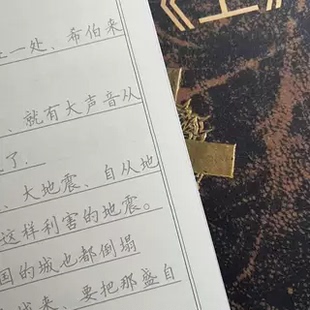 一处、希伯来
、就有大声音从
了.
、大地震、自从地
这样利害的地震。
国的城也都倒塌
来、要把那盛自
《工》